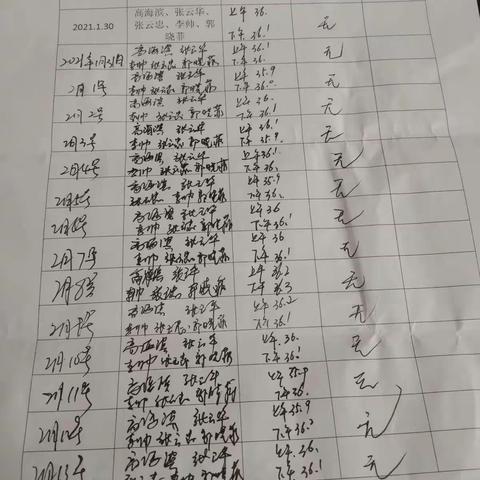 高海滨、张云华、 上午 36.
2021.1.30 张云忠、李帅、郭 无
晓菲 下午 36.1
高海滨 张云华 上午 36.
2021年1月31日 李帅 张云忠 郭晓菲 下午 36.1 无
高海滨 张云华 上午 35.9
2月1号 李帅 张云忠 郭晓菲 下午 36.° 无
高海滨 张云华 上午 36.
2月2号 李帅 张云忠 郭晓菲 下午 36.1 无
高海滨 张云华 上午 36.1
2月3号 李帅 张云忠 郭晓菲 下午 35.9 无
高海滨 张云华 上午 36.1
2月4号 李帅 张云忠 郭晓菲 下午 36. 无
高海滨 张云华 上午 35.9
2月5号 张云忠 郭晓菲 下午 36. 无
高海滨 张云华 上午 36
2月6号 李帅 张云忠 郭晓菲 下午 36.1 无
高海滨 张云华 上午 36
2月7号 李帅 张云忠 郭晓菲 下午 36.1 无
高海滨 张云华 上午 36.2
2月8号 李帅 张云忠 郭晓菲 下午 36.3 无
高海滨 张云华 上午 36.2
2月9号 李帅 张云忠 郭晓菲 下午 36.1 无
高海滨 张云华 上午 36.
2月10号 李帅 张云忠 郭晓菲 下午 36.1 无
高海滨 张云华 上午 35.9
2月11号 李帅 张云忠 郭晓菲 下午 36. 无
高海滨 张云华 上午 35.9
2月12号 李帅 张云忠 郭晓菲 下午 36.2 无
高海滨 张云华 上午 36.
2月13号 张云忠 李帅 郭晓菲 下午 36.1 无